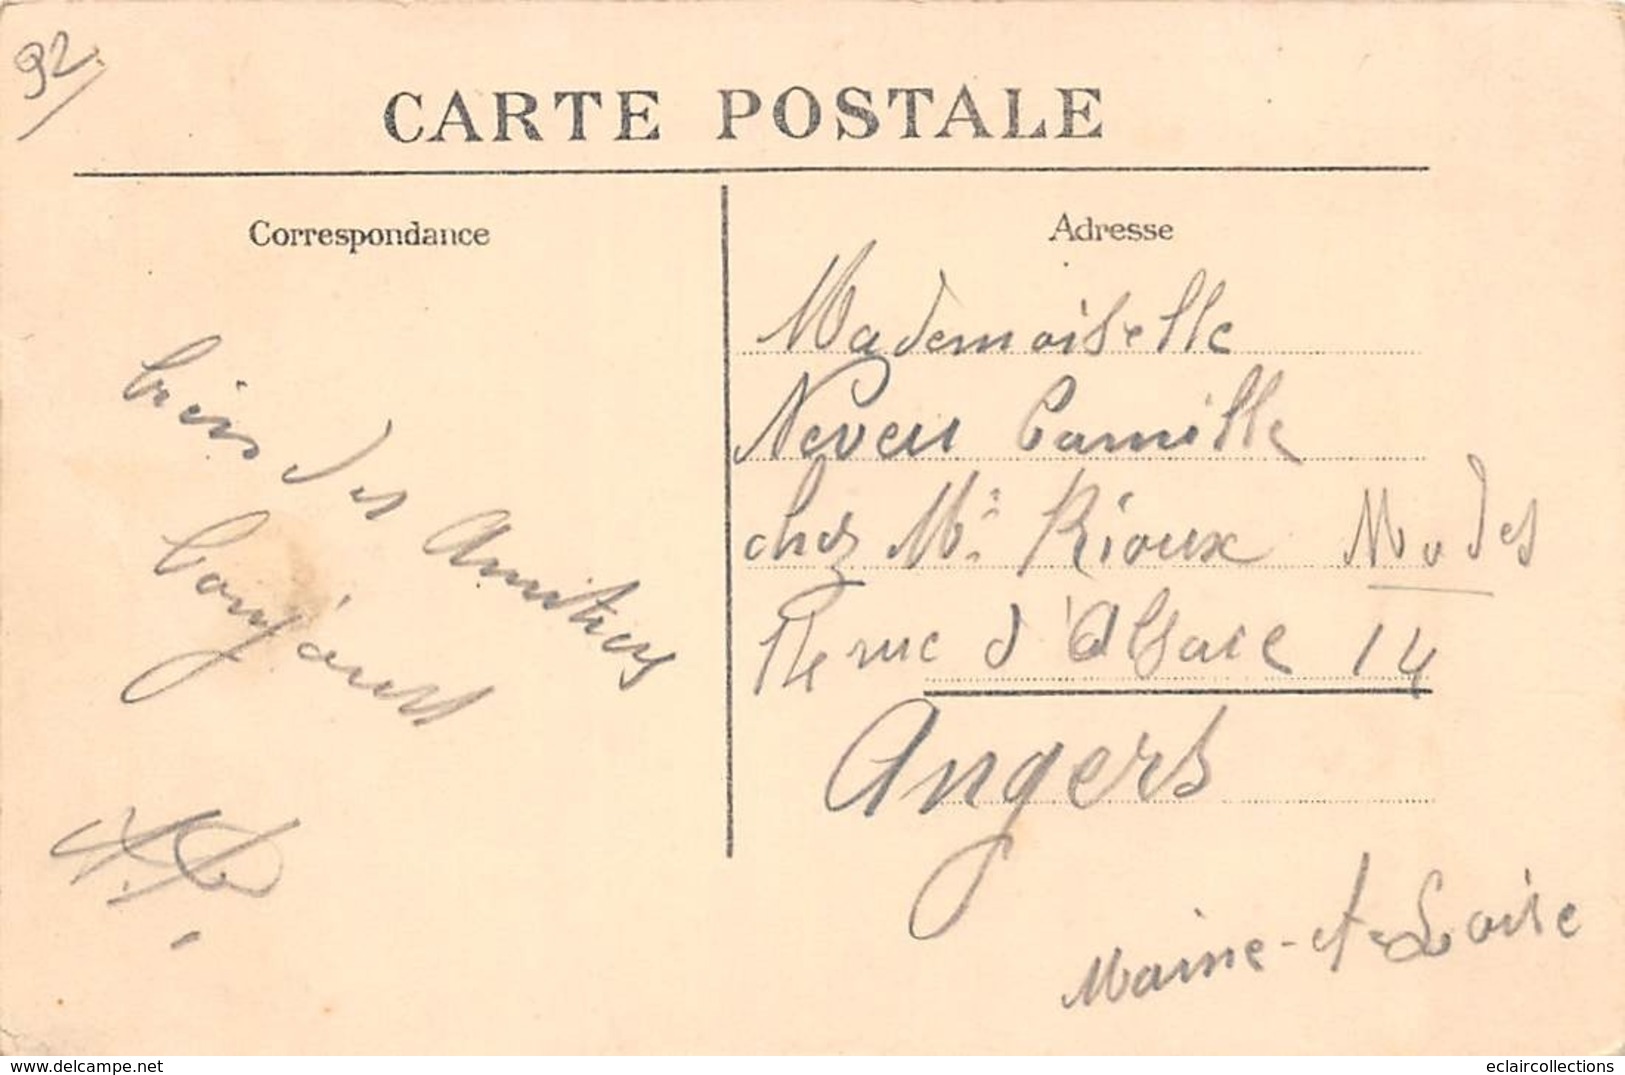 92
CARTE POSTALE
Correspondance
Adresse
bien des Amitiers
Mademoiselle
Neveu Camille
chez Mr Rioux Modes
14 rue d'Alsace 14
Angers
Maine-et-Loire
delcampe.net
eclaircollections